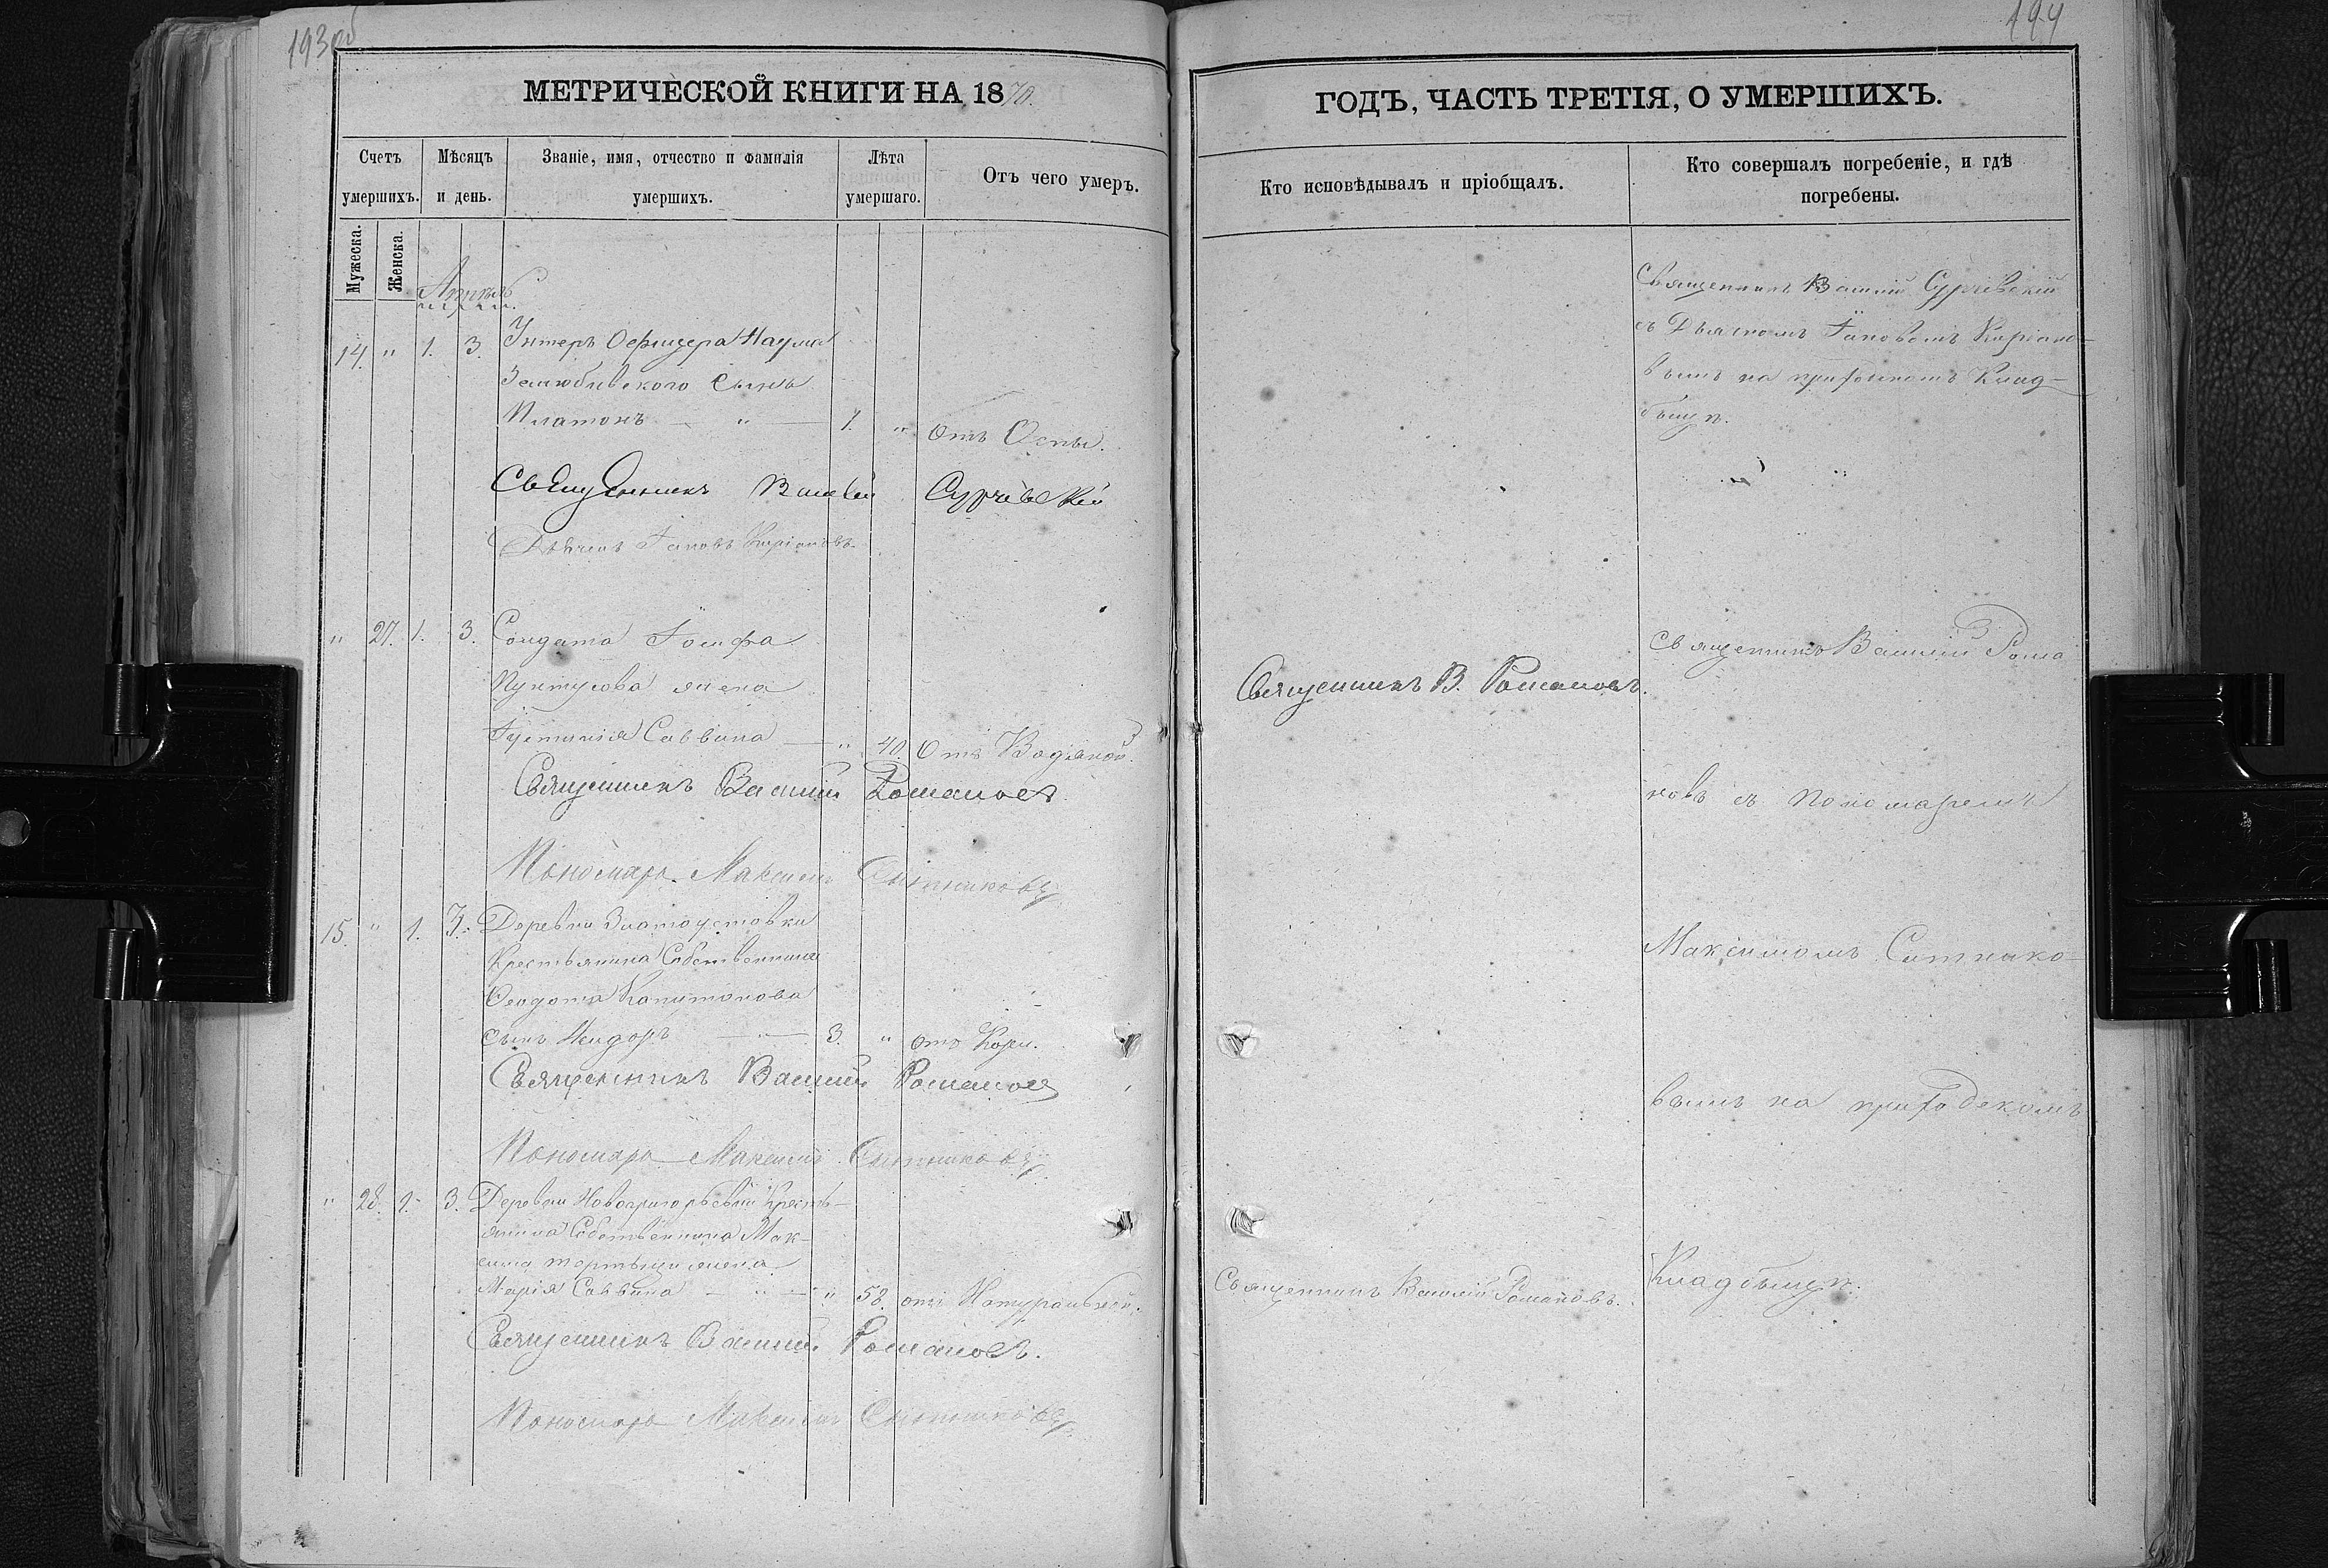 193об
МЕТРИЧЕСКОЙ КНИГИ НА 1870.
Счетъ умершихъ.
Мѣсяцъ и день.
Званіе, имя, отчество и фамилія умершихъ.
Лѣта умершаго.
Отъ чего умеръ.
Мужеска.
Женска.
Апрѣль
14. " 1. 3. Унтеръ Офицера Наума
сынъ
Платонъ — " — 1. " Отъ Оспы.
Священникъ Василій Сурчевскій
Дьячекъ Іаковъ
" 27. 1. 3. Солдата Іосифа
жена
Іустинія Саввина — " 40. Отъ Водяной.
Священникъ Василій Романовъ
Пономарь Максимъ Сытниковъ
15. " 1. 3. Деревни Златоустовки
Крестьянина Собственника
Ѳеодота Капитонова
сынъ Исидоръ — " — 3. " отъ Кори.
Священникъ Василій Романовъ
Пономарь Максимъ Сытниковъ
" 28. 1. 3. Деревни Новогригорьевки Кресть-
янина Собственника Мак-
сима жена
Марія Саввина — " — " 58. отъ Натуральной.
Священникъ Василій Романовъ.
Пономарь Максимъ Сытниковъ
194
ГОДЪ, ЧАСТЬ ТРЕТІЯ, О УМЕРШИХЪ.
Кто исповѣдывалъ и пріобщалъ.
Кто совершалъ погребеніе, и гдѣ
погребены.
Священникъ Василій Сурчевскій
съ Дьячкомъ Іаковомъ
вымъ на приходскомъ Клад-
бищѣ.
Священникъ В. Романовъ.
Священникъ Василій Рома
новъ съ пономаремъ
Максимомъ Ситнико-
вымъ на приходскомъ
Священникъ Василій Романовъ.
Кладбищѣ.